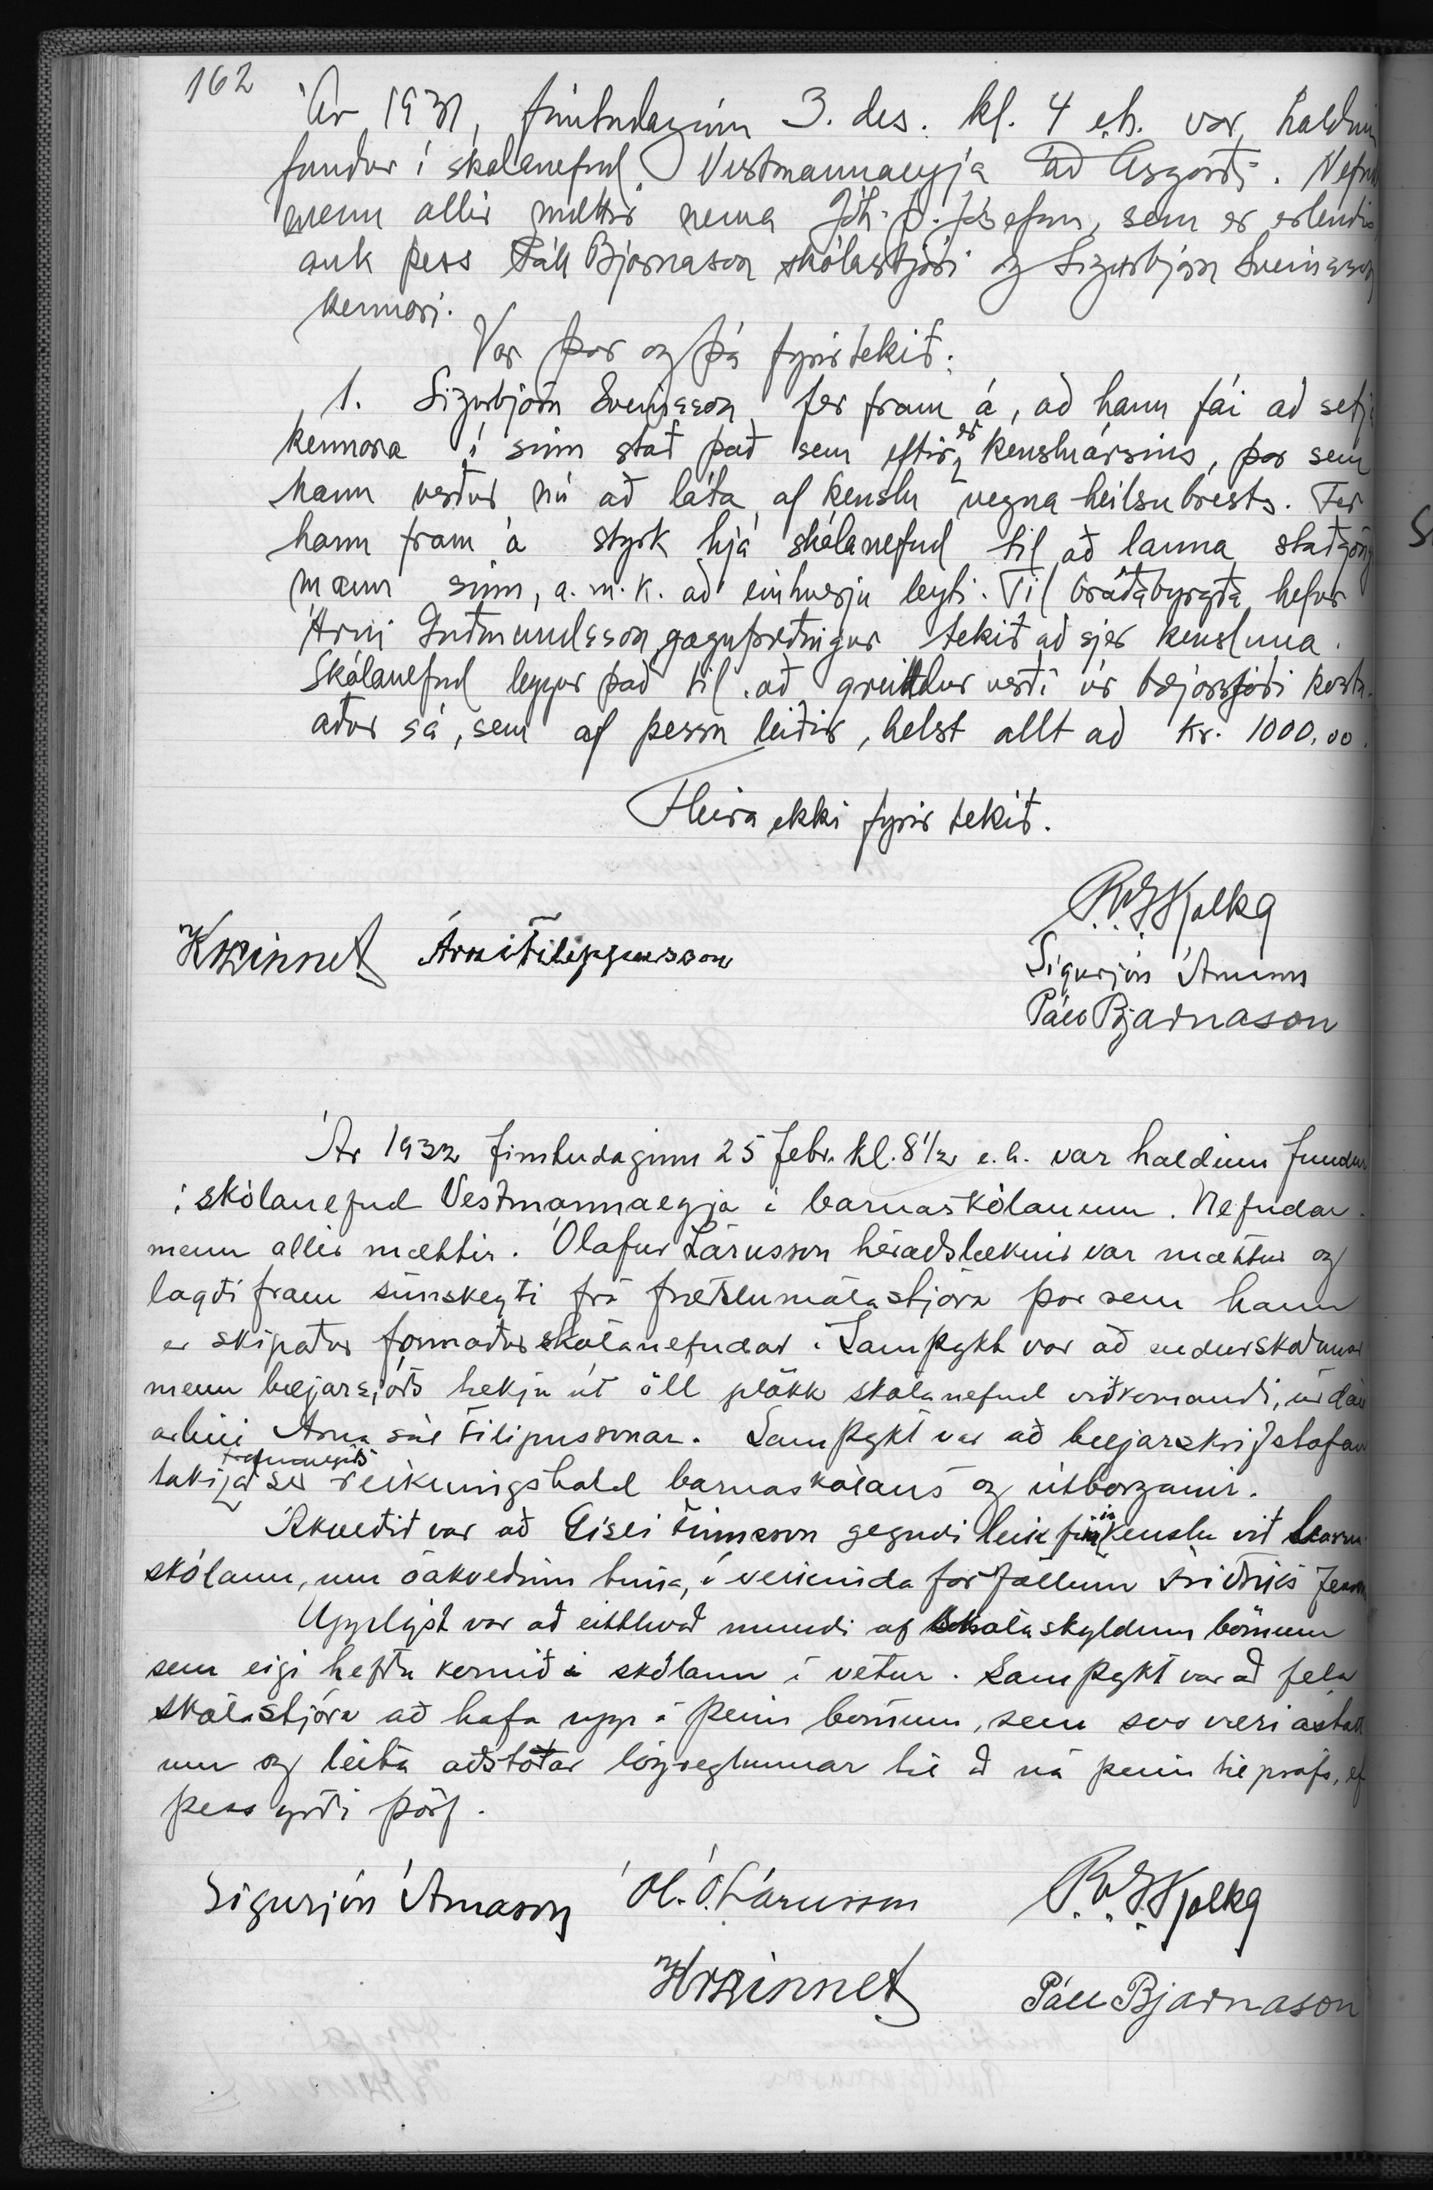 162
Ár 1931, fimtudaginn 3. des. kl. 4 e.h. var haldinn
fundur í skólanefnd Vestmannaeyja að Ásgarði. Nefnd
menn allir mættir nema Jóh. Þ. Jósefsson, sem er erlendis,
auk þess Páll Bjarnason skólastjóri og Sigurbjörn Sveinsson
kennari.
Var þar og þá fyrirtekið:
1. Sigurbjörn Sveinsson fer fram á, að hann fái að setja
kennara í sinn stað það sem eftir er kensluársins, þar sem
hann verður nú að láta af kenslu vegna heilsubrests. Fer
hann fram á styrk hjá skólanefnd til að launa staðgöngu
mann sinn, a.m.k. að einhverju leyti. Til bráðabyrgða hefur
Árni Guðmundsson gagnfræðingur tekið að sjer kensluna.
Skólanefnd leggur það til að greiddur verði úr bæjarsjóði kostn-
aður sá, sem af þessu leiðir, helst allt að kr. 1000,00.
Fleira ekki fyrir tekið.
P.V.G. Kolka
K Kinnet Árni Filippusson
Sigurjón Árnason
Páll Bjarnason
Ár 1932 fimtudaginn 25 febr. kl. 8 1/2 e.h. var haldinn fundur
í skólanefnd Vestmannaeyja í barnaskólanum. Nefndar-
menn allir mættir. Ólafur Lárusson héraðslæknir var mættur og
lagði fram símskeyti frá fræðslumálastjóra þar sem hann
er skipaður formaður skólanefndar. Samþykt var að endurskoðunar
menn bæjarsjóðs tækju út öll plögg skólanefnd viðkomandi, úr dán
arbúi Árna sál Filipussonar. Samþykt var að bæjarskrifstofan
taki að ser reikningshald barnaskólans og útborganir.
Ákveðið var að Gísli Finnsson gegndi leikfimikenslu við barna
skólann, um óákveðinn tíma, í veikinda forföllum Friðriks Jessonar
Upplýst var að eitthvað mundi af skólaskyldum börnum
sem eigi hefðu komið í skólann í vetur. Samþykt var að fela
skólastjóra að hafa upp á þeim börnum, sem svo væri ástatt
um og leita aðstoðar lögreglunnar til að ná þeim til prófs, ef
þess yrði þörf.
Sigurjón Árnason Ól. Ó. Lárusson P.V.G. Kolka
K Kinnet Páll Bjarnason